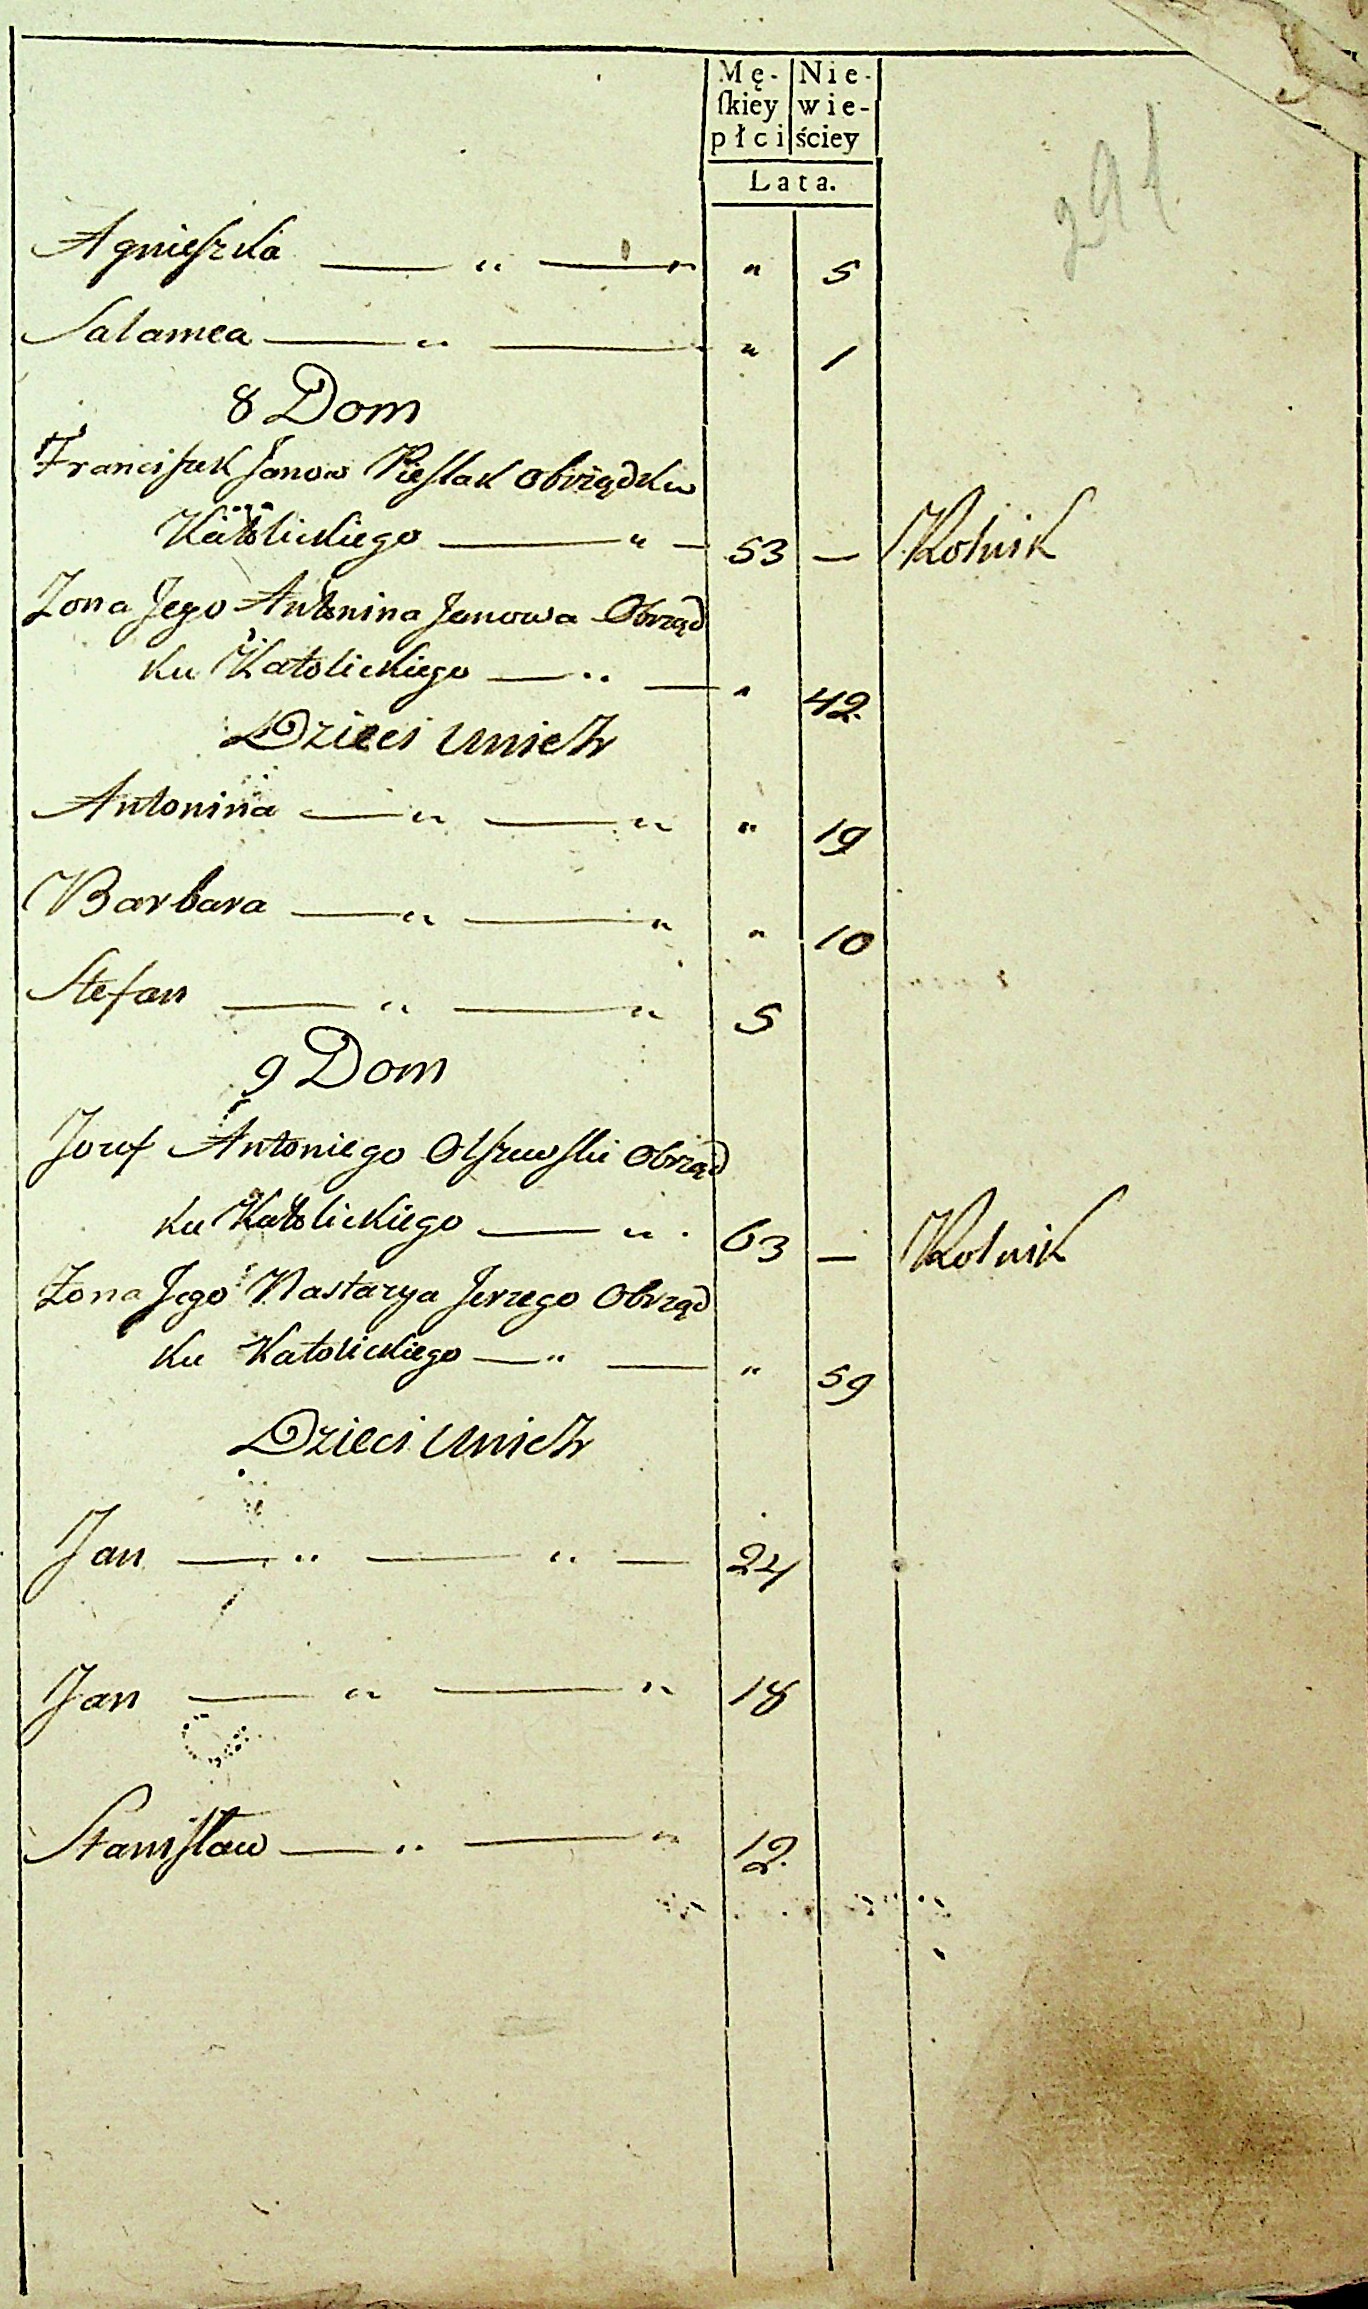 Mę- Nie-
ſkiey wie-
płci ściey
Lata.
291
Agnieſzka — " — " " 5
Salamea — " — " 1
8 Dom
Franciſzek Janow Pieſlak Obrządku
Katolickiego — " — 53 — Rolnik
Zona Jego Antonina Janowa Obrząd
ku Katolickiego — " — " 42.
Dzieci Unich
Antonina — " — " " 19
Barbara — " — " " 10
Stefan — " — " 5
9 Dom
Jozef Antoniego Olſzewſki Obrząd
ku Katolickiego — " . 63 — Rolnik
Zona Jego Nastazya Jerzego Obrząd
ku Katolickiego — " — " 59
Dzieci Unich
Jan — " — " — 24
Jan — " — " 18
Staniſław — " — " 12.